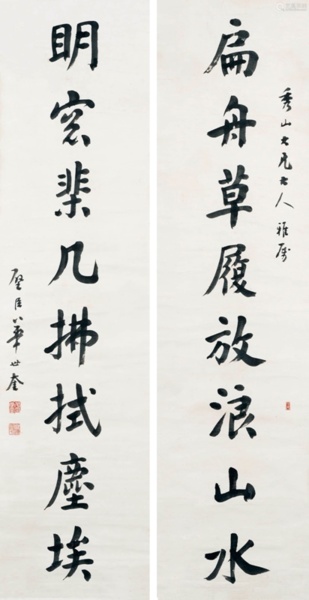 扁舟草履放浪山水
秀山大兄大人雅属
明窓棐几拂拭塵埃
璧臣華世奎